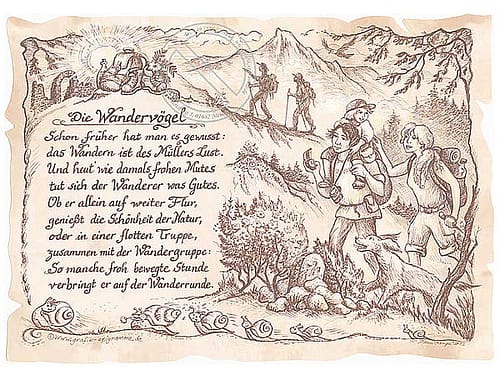 Die Wandervögel
Schon früher hat man es gewusst:
das Wandern ist des Müllers Lust.
Und heut' wie damals frohen Mutes
tut sich der Wanderer was Gutes.
Ob er allein auf weiter Flur,
genießt die Schönheit der Natur,
oder in einer flotten Truppe,
zusammen mit der Wandergruppe:
So manche froh bewegte Stunde
verbringt er auf der Wanderrunde.